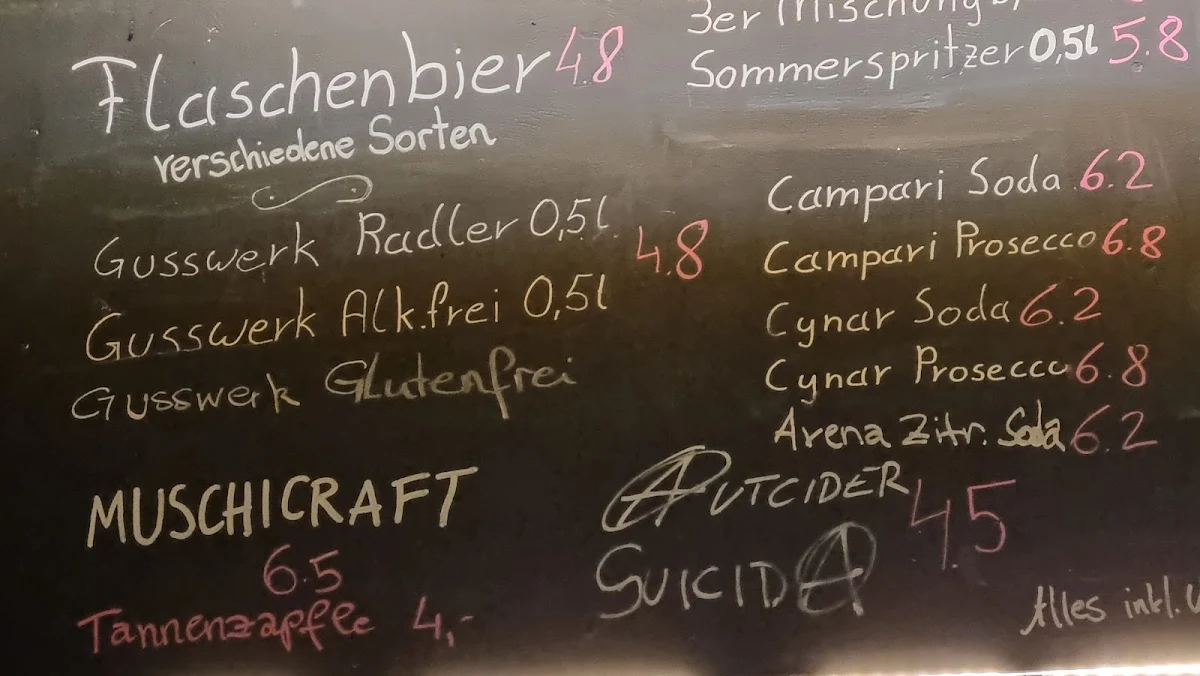 Flaschenbier 4.8
verschiedene Sorten
Gusswerk Radler 0,5l
4.8
Gusswerk Alk.frei 0,5l
Gusswerk Glutenfrei
MUSCHICRAFT
6.5
Tannenzapfle 4,-
3er Mischung
Sommerspritzer 0,5l 5.8
Campari Soda 6.2
Campari Prosecco 6.8
Cynar Soda 6.2
Cynar Prosecco 6.8
Arena Zitr. Soda 6.2
AUTCIDER
4.5
SUICIDA
Alles inkl.